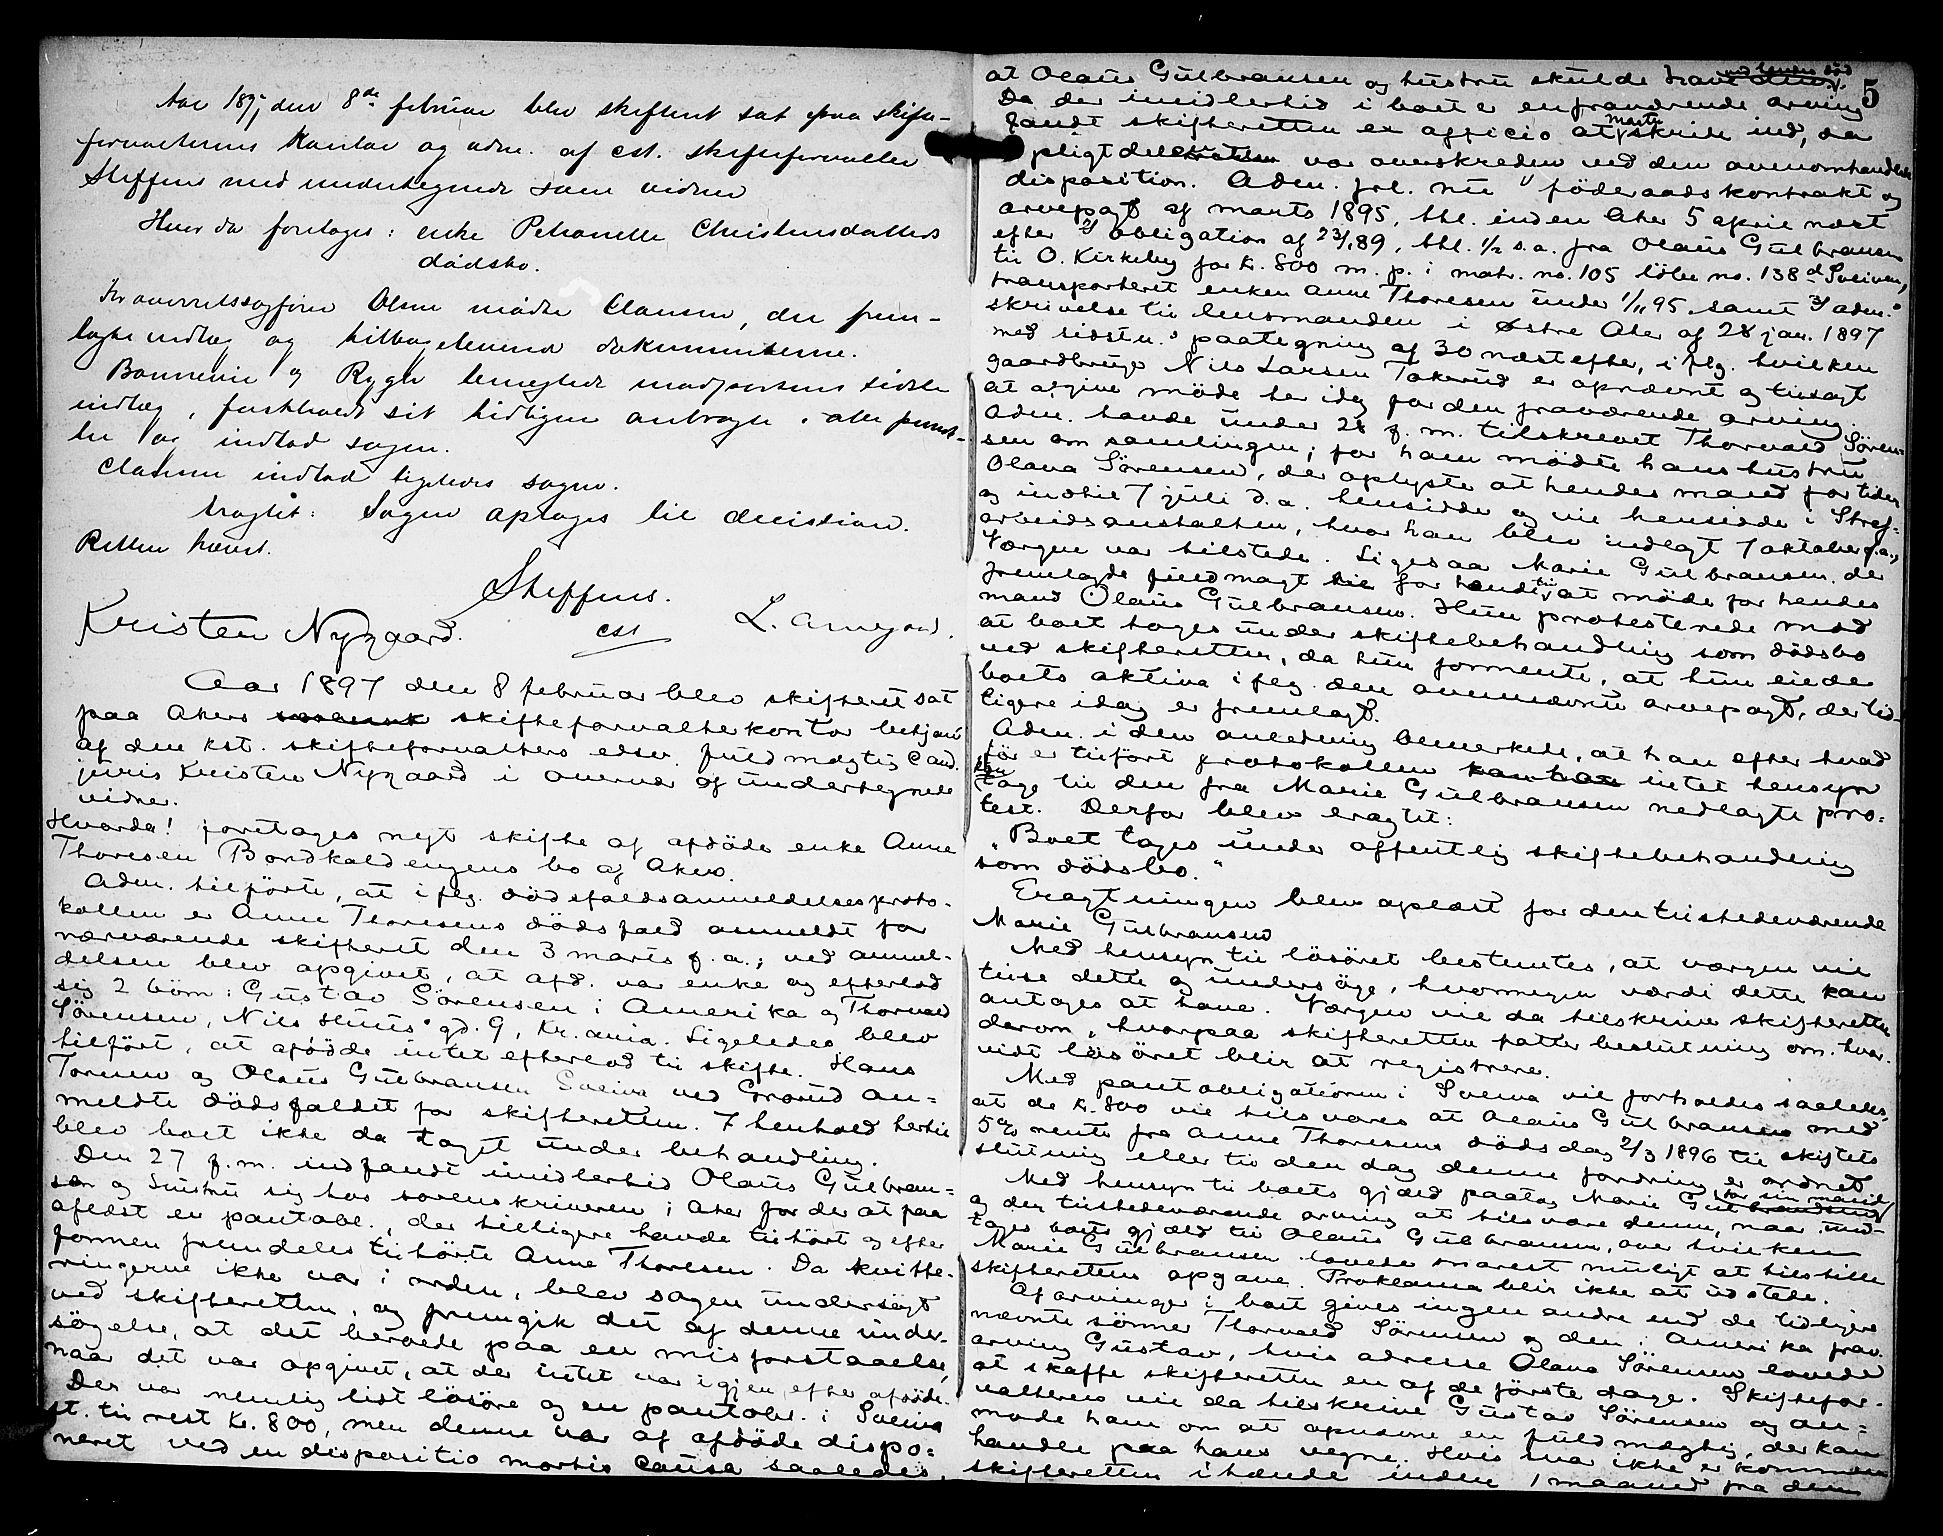 Aar 1897 den 8de februar blev skifteret sat paa skifte-
forvalterens kontor og adm. af cst. skifteforvalter
Steffens med undertegnede som vidner
Hvorda foretages: enke Petronelle Christensdatters
dødsbo.
For overretssagfører Olsen mødte Clausen, der frem-
lagde indlæg og tilbageleverede dokumenterne.
Bonnevie og Rygh benegtede modpartens sidste
indlæg, fastholdt sit tidligere anbragte i alle punk-
ter og indlod sagen.
Clausen indlod ligeledes sagen.
Eragtet: Sagen optages til decision.
Retten hævet.
Steffens.
cst
Kristen Nygaard. L. Arnegaard.
Aar 1897 den 8 februar blev skifteret sat
paa Akers skifteforvalterkontor betjent
af den kst. skifteforvalters edsv. fuldmægtig cand.
juris Kristen Nygaard i overvær af undertegnede
vidner.
Hvorda! foretages nyt skifte af afdøde enke Anne
Thoresen Bondkaldengens bo af Aker.
Adm. tilførte, at ifølg. dødsfaldsanmeldelsesproto-
kollen er Anne Thoresens dødsfald anmeldt for
nærværende skifteret den 3 marts f.a.; ved anmel-
delsen blev opgivet, at afd. var enke og efterlod
sig 2 børn: Gustav Sørensen i Amerika og Thorvald
Sørensen, Nils Huus' gd. 9, Kr.ania. Ligeledes blev
tilført, at afdøde intet efterlod til skifte. Hans
Toresen og Olaus Gulbransen Sveiva ved Grorud an-
meldte dødsfaldet for skifteretten. I henhold hertil
blev boet ikke da taget under behandling.
Den 27 f.m. indfandt imidlertid Olaus Gulbran-
sen og hustru sig hos sorenskriveren i Aker for der at faa
aflæst en pantobl., der tilligere havde tilhørt og efter
formen fremdeles tilhørte Anne Thoresen. Da kvitte-
ringerne ikke var i orden, blev sagen undersøgt
ved skifteretten, og fremgik det af denne under-
søgelse, at det beroede paa en misforstaaelse,
naar det var opgivet, at der intet var igjen efter afdøde.
Der var nemlig lidt løsøre og en pantobl. i Sveiva
st. til rest kr. 800, men denne var af afdøde dispo-
neret ved en dispositio mortis causa saaledes,
5
at Olaus Gulbransen og hustru skulde have den ved hendes død.
Da der imidlertid i boet er en fraværende arving
fandt skifteretten ex officio at maatte skride ind, da
pligtdelsretten var overskreden ved den ovenomhandlede
disposition. Adm. frl. nu 1) føderaadskontrakt og
arvepagt af marts 1895, thl. inden Aker 5 april næst
efter 2) obligation af 23/1 89, thl. 1/2 s.a. fra Olaus Gulbransen
til O. Kirkeby for kr. 800 m. p. i matr. no. 105 løbe no. 138d Sveiven,
transporteret enken Anne Thoresen under 1/11 95 samt 3) adm.s
skrivelse til lensmanden i Østre Aker af 28 jan. 1897
med sidstn.s paategning af 30 næstefter, ifølg. hvilken
gaardbruger Nils Larsen Tokerud er opnævnt og tilsagt
at afgive møde her idag for den fraværende arving.
Adm. havde under 28 f. m. tilskrevet Thorvald Søren-
sen om samlingen; for ham mødte hans hustru
Olava Sørensen, der oplyste at hendes mand for tiden
og indtil 7 juli d.a. hensidde og vil hensidde i Straf-
arbeidsanstalten, hvor han blev indlagt 7 oktober f.a.,
Værgen var tilstede. Ligesaa Marie Gulbransen, der
fremlagde fuldmagt for hende til at møde for hendes
mand Olaus Gulbransen. Hun protesterede mod
at boet toges under skiftebehandling som dødsbo
ved skifteretten, da hun formente, at hun eiede
boets aktiva ifølg. den ovennævnte arvepagt, der tid-
ligere idag er fremlagt.
Adm. i den anledning bemerkede, at han efter hvad
før er tilført protokollen kan han intet hensyn
tage til den fra Marie Gulbransen nedlagte pro-
test. Derfor blev eragtet:
„Boet tages under offentlig skiftebehandling
som dødsbo."
Eragtningen blev oplæst for den tilstedeværende
Marie Gulbransen
Med hensyn til løsøret bestemtes, at værgen vil
tilse dette og undersøge, hvormegen værdi dette kan
antages at have. Værgen vil da tilskrive skifteretten
derom, hvorpaa skifteretten fatter beslutning om, hvor-
vidt løsøret blir at registrere.
Med pantobligationen i Sveiva vil forholdes saaledes,
at de kr. 800 vil tilsvares at Olaus Gulbransen med
5% rente fra Anne Thoresens dødsdag 2/3 1896 til skiftets
slutning eller til den dag denne fordring er ordnet
Med hensyn til boets gjæld paatog Marie Gulbransen for sin mand
og den tilstedeværende arving at tilsvare denne, naar und-
tages boets gjæld til Olaus Gulbransen, over hvilken
Marie Gulbransen lovede snarest muligt at tilstille
skifteretten opgave. Proklama blir ikke at udstede.
Af arvinger i boet gives ingen andre end de tidligere
nævnte sønner Thorvald Sørensen og den i Amerika frav.
arving Gustav, hvis adresse Olava Sørensen lovede
at skaffe skifteretten en af de første dage. Skiftefor-
valteren vil da tilskrive Gustav Sørensen og an-
mode ham om at opnævne en fuldmægtig, der kan
handle paa hans vegne. Hvis svar ikke er kommen
skifteretten ihænde inden 1 maaned fra dem